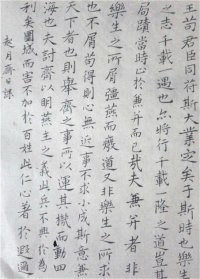 王苟君臣同符斯大業定矣于斯時也樂生
之志千載一遇也亦將行千載一隆之道豈其
局蹟當時止於兼并而已哉夫兼并者非
樂生之所屑彊燕而廢道又非樂生之所求
也不屑苟得則心無近事不求小成斯意兼
天下者也則舉齊之事所以運其機而動四
海也夫討齊以明燕主之義此兵不興於為
利矣圍城而害不加於百姓此仁心著於遐邇
月齋日課